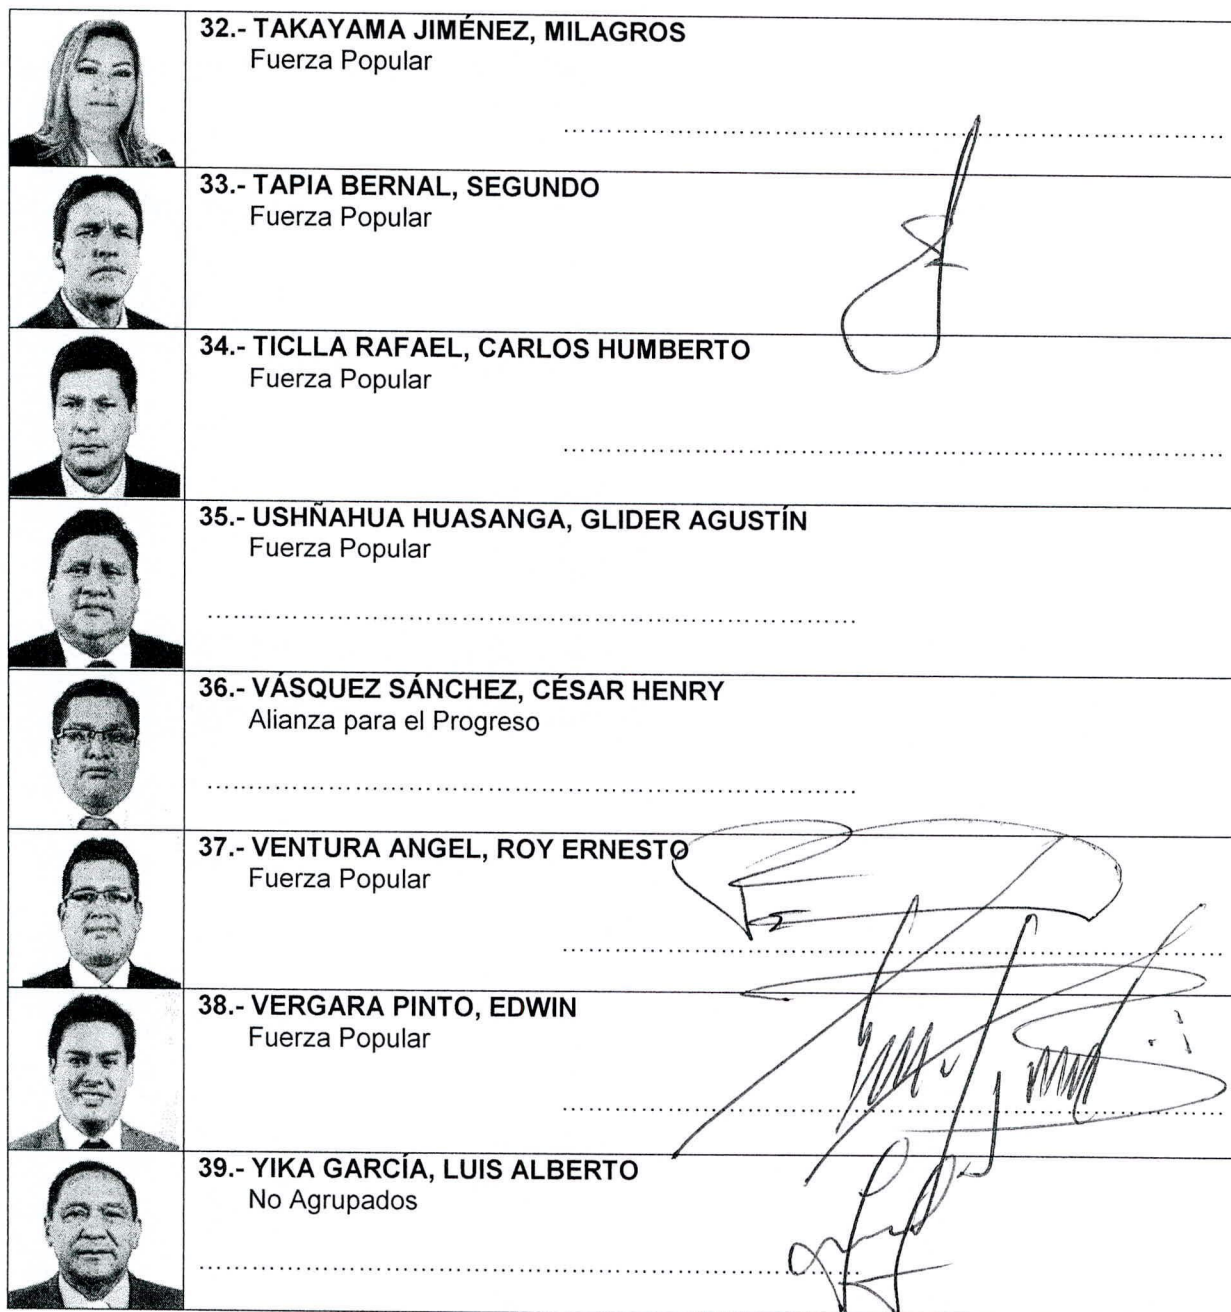 32.- TAKAYAMA JIMÉNEZ, MILAGROS
Fuerza Popular
33.- TAPIA BERNAL, SEGUNDO
Fuerza Popular
34.- TICLLA RAFAEL, CARLOS HUMBERTO
Fuerza Popular
35.- USHÑAHUA HUASANGA, GLIDER AGUSTÍN
Fuerza Popular
36.- VÁSQUEZ SÁNCHEZ, CÉSAR HENRY
Alianza para el Progreso
37.- VENTURA ANGEL, ROY ERNESTO
Fuerza Popular
38.- VERGARA PINTO, EDWIN
Fuerza Popular
39.- YIKA GARCÍA, LUIS ALBERTO
No Agrupados